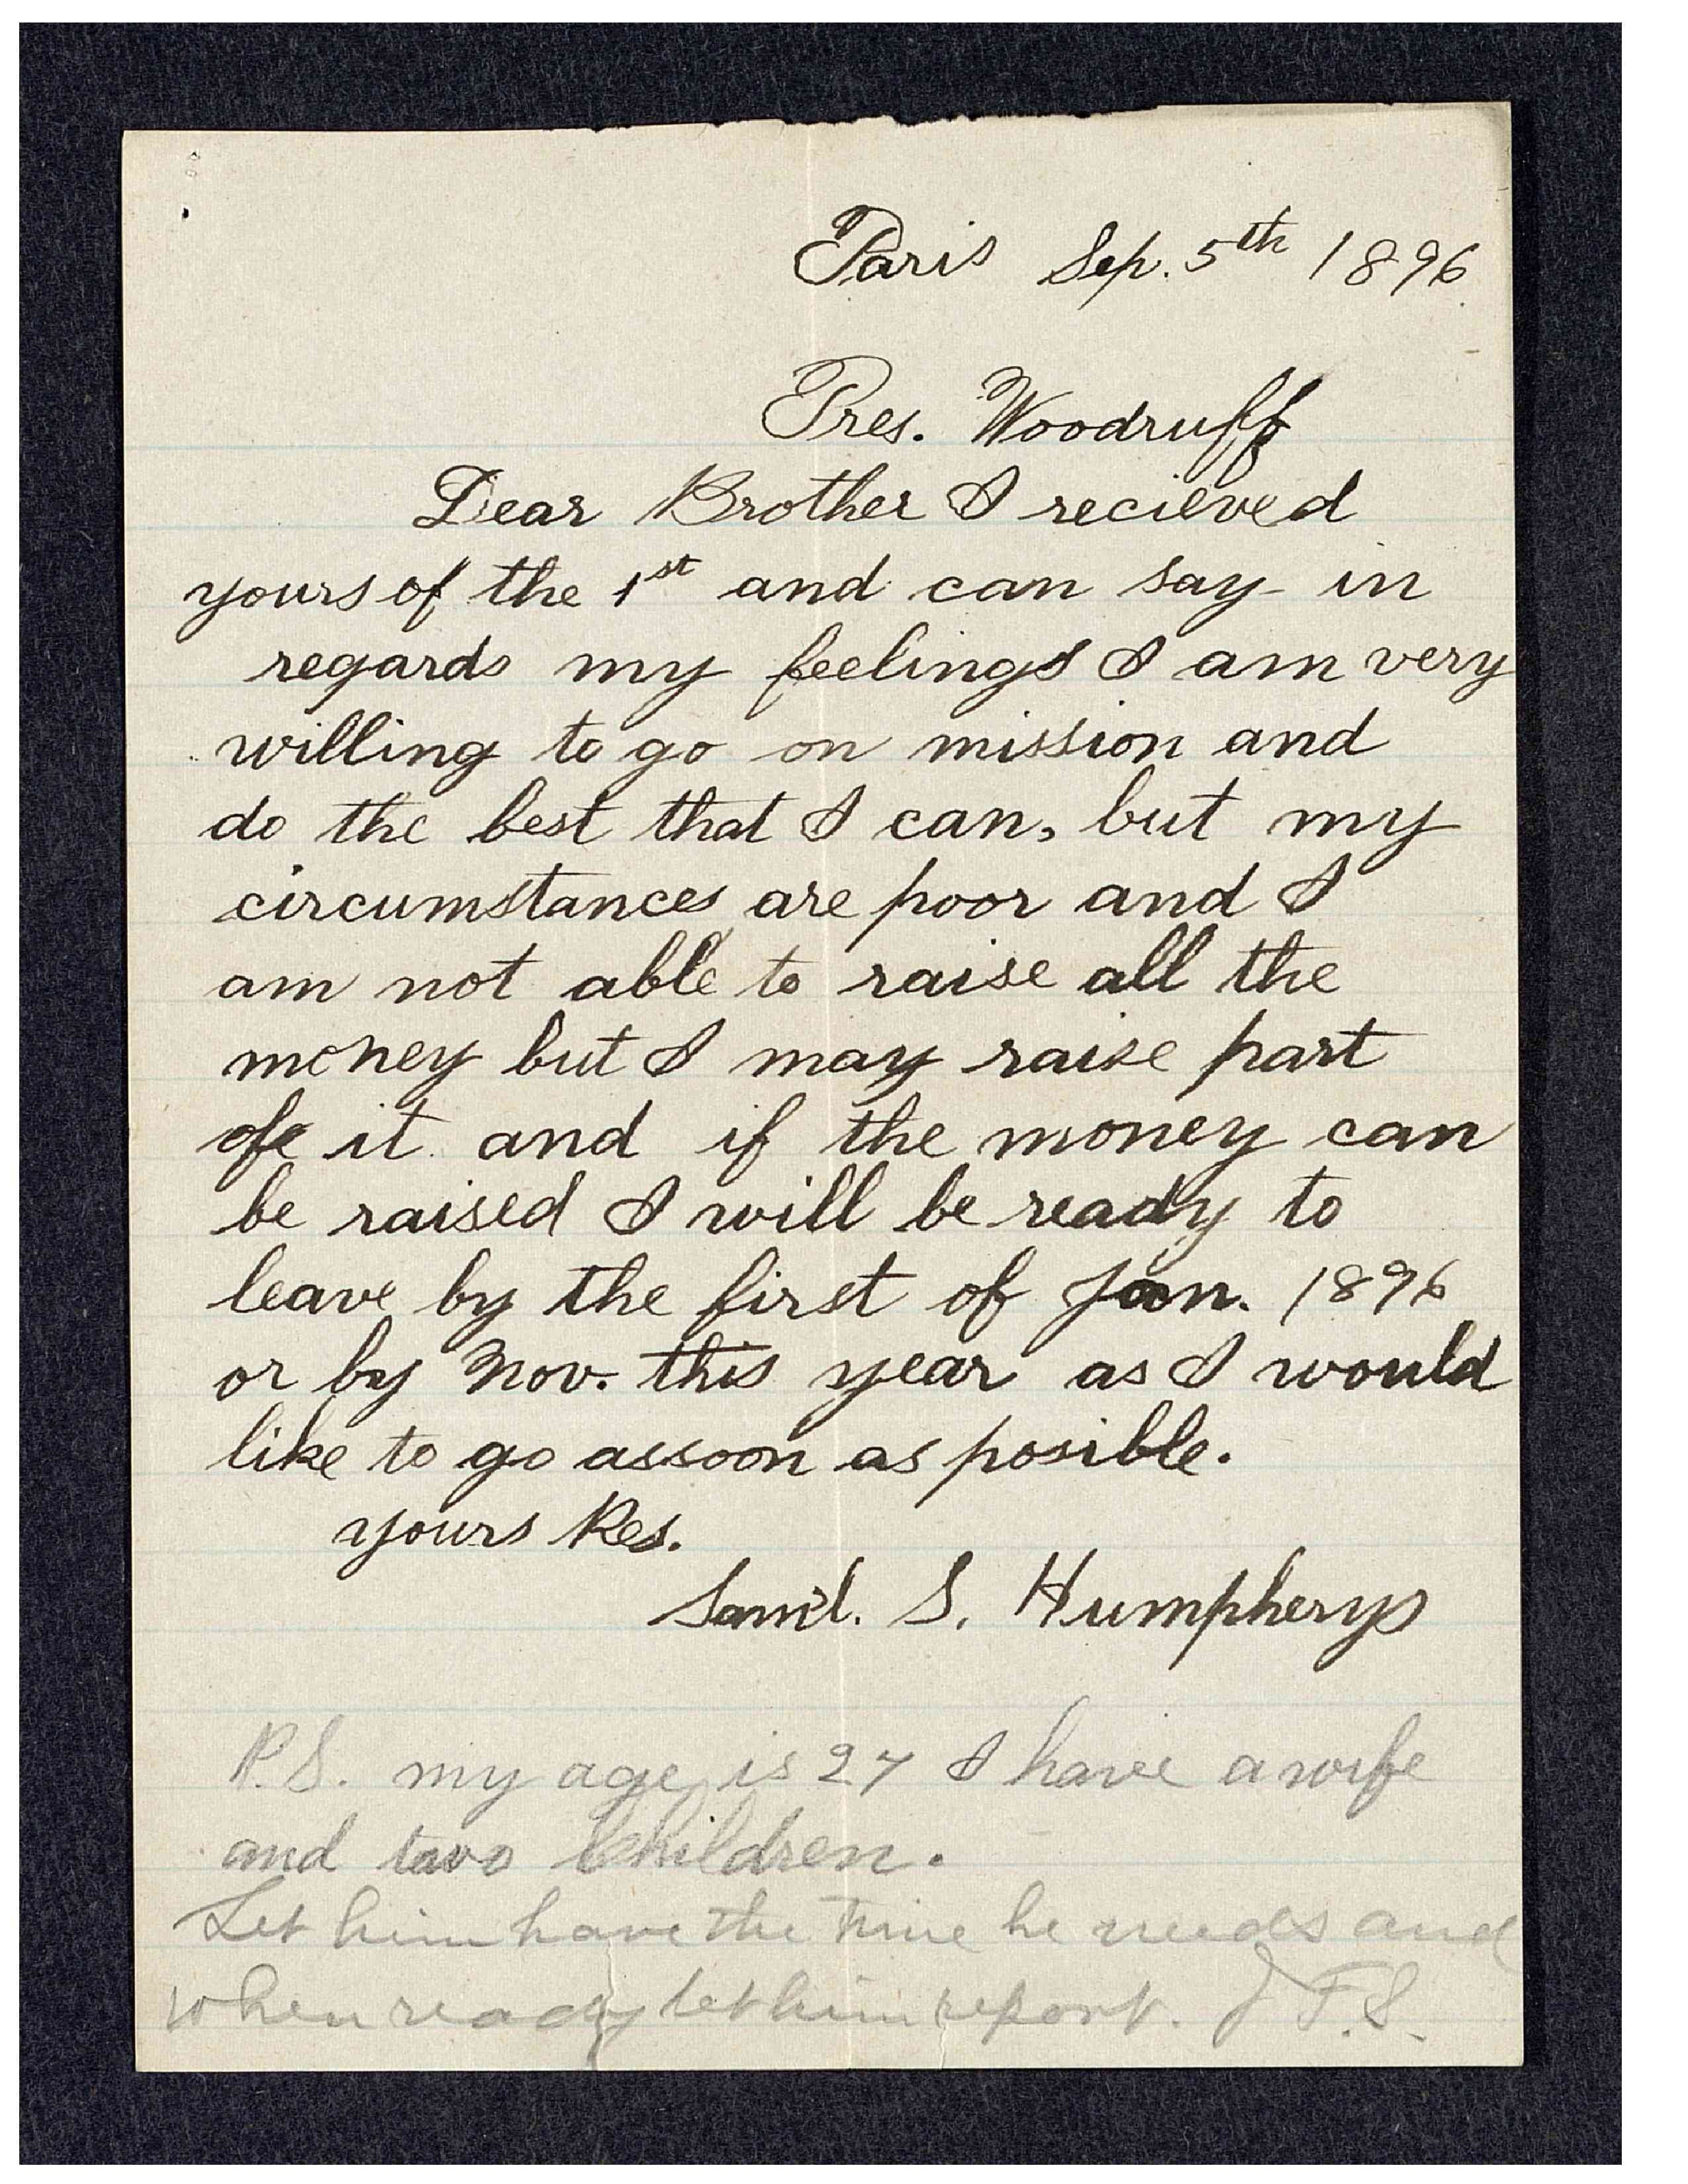 Paris Sep. 5th 1896
Pres. Woodruff
Dear Brother I recieved
yours of the 1st and can say in
regards my feelings I am very
willing to go on mission and
do the best that I can, but my
circumstances are poor and I
am not able to raise all the
money but I may raise part
of it and if the money can
be raised I will be ready to
leave by the first of Jan. 1896
or by Nov. this year as I would
like to go assoon as posible.
yours Res.
Sam'l. S. Humpherys
P.S. my age is 27 I have a wife
and two Children.
Let him have the time he needs and
when ready let him report. J F. S.